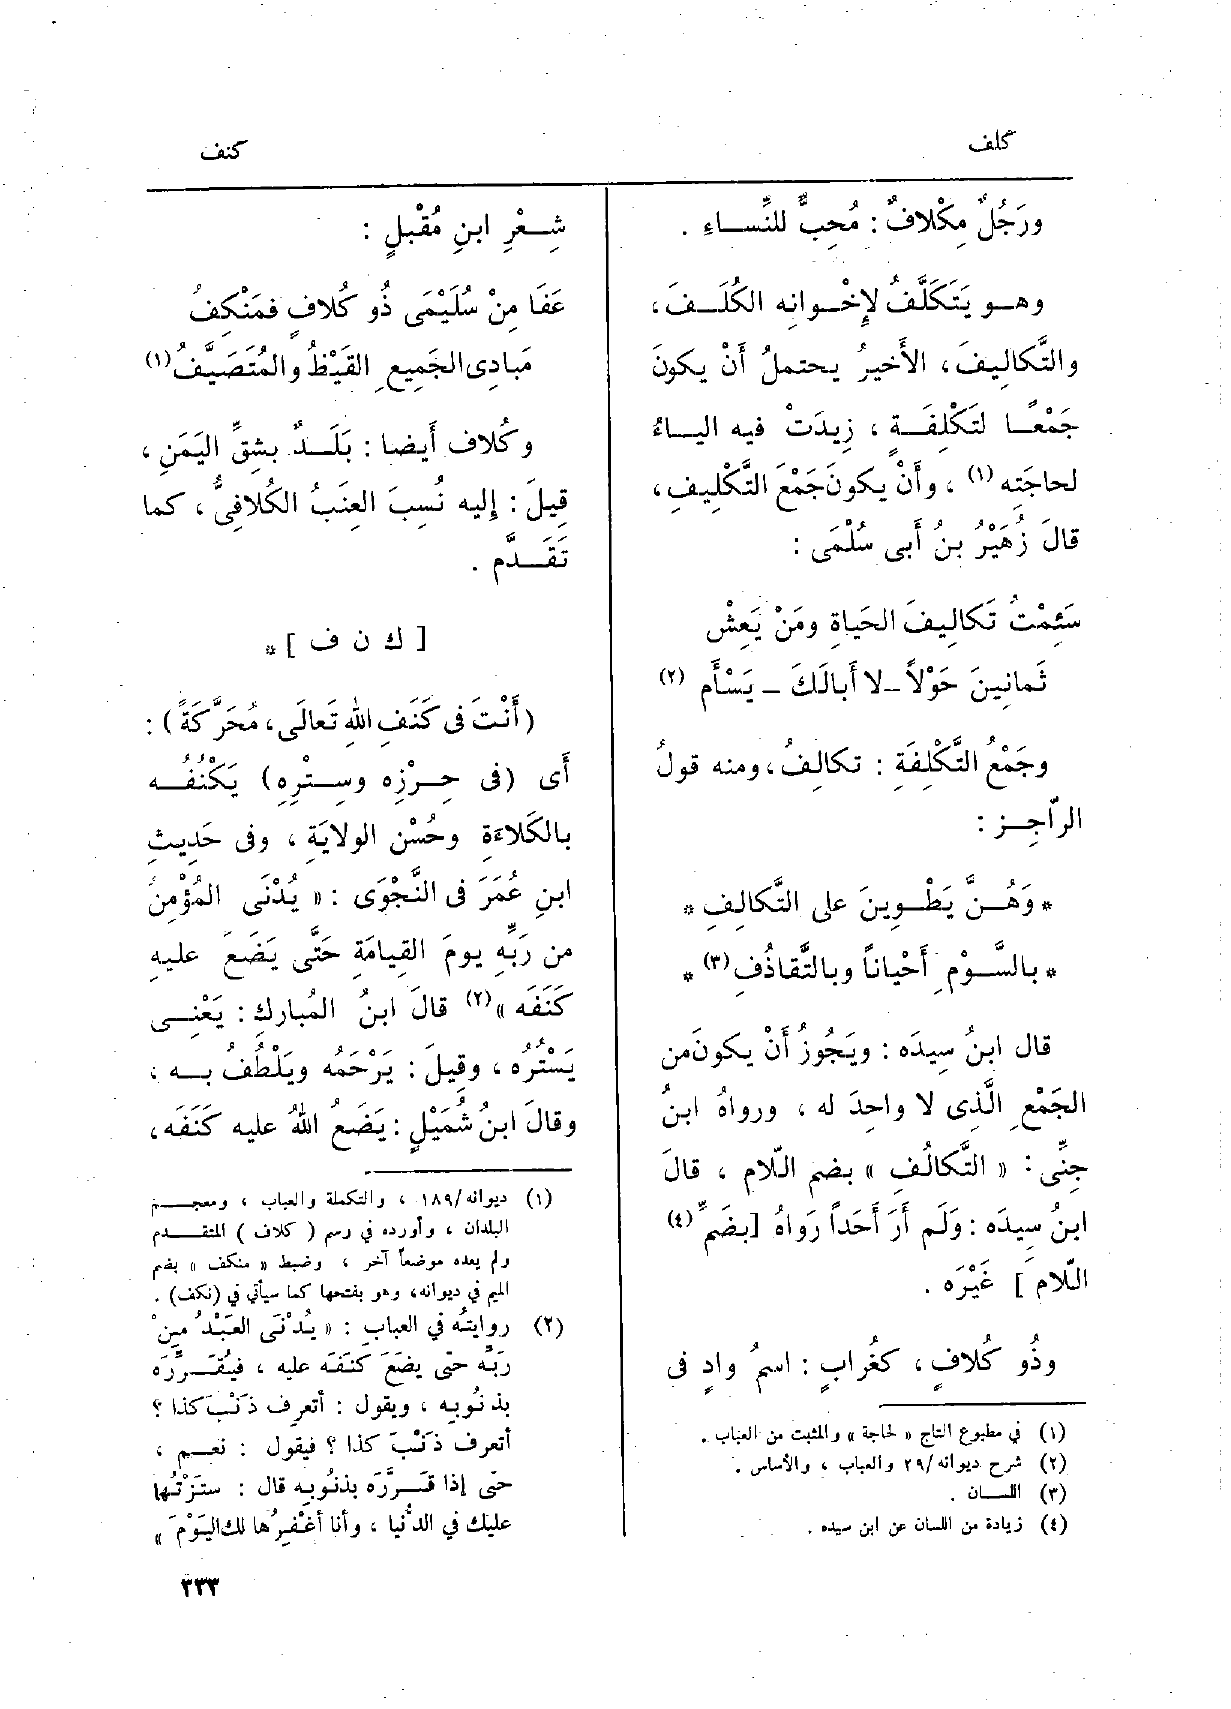 كلف
كنف
ورَجُلٌ مِكْلافٌ : مُحِبٌّ للنِّساءِ .
وهو يَتَكَلَّفُ لإِخْوانِه الكُلَفَ ،
والتَّكالِيفَ ، الأَخيرُ يحتملُ أَنْ يكونَ
جَمْعًا لتَكْلِفَةٍ ، زِيدَتْ فيه الياءُ
لحاجَتِه (١) ، وأَنْ يكونَ جَمْعَ التَّكْلِيفِ ،
قالَ زُهَيْرُ بنُ أَبى سُلْمَى :
سَئِمْتُ تَكالِيفَ الحَياةِ ومَنْ يَعِشْ
ثَمانِينَ حَوْلاً ــ لا أَبالَكَ ــ يَسْأَمِ (٢)
وجَمْعُ التَّكْلِفَةِ : تكالِفُ ، ومنه قولُ
الرّاجِزِ :
* وَهُنَّ يَطْوِينَ على التَّكالِفِ *
* بالسَّوْمِ أَحْياناً وبالتَّقاذُفِ (٣) *
قال ابنُ سِيدَه : ويَجُوزُ أَنْ يكونَ من
الجَمْعِ الَّذِى لا واحِدَ له ، ورواهُ ابنُ
جِنِّى : « التَّكالُفِ » بضم اللّام ، قالَ
ابنُ سِيدَه : وَلَم أَرَ أَحَداً رَواهُ [ بضَمِّ (٤)
اللّام ] غَيْرَه .
وذُو كُلافٍ ، كغُرابٍ : اسمُ وادٍ فى
(١) في مطبوع التاج « لحاجة » والمثبت من العباب .
(٢) شرح ديوانه /٢٩ والعباب ، والأساس .
(٣) اللسان .
(٤) زيادة من اللسان عن ابن سيده .
شِعْرِ ابنِ مُقْبِلٍ :
عَفَا مِنْ سُلَيْمَى ذُو كُلافٍ فمَنْكِفُ
مَبادِى الجَمِيعِ القَيْظُ والمُتَصَيَّفُ (١)
وكُلاف أَيضا : بَلَدٌ بشِقِّ اليَمَنِ ،
قِيلَ : إِليه نُسِبَ العِنَبُ الكُلافِىُّ ، كما
تَقَدَّم .
[ ك ن ف ] *
(أَنْتَ فى كَنَفِ اللهِ تَعالَى ، مُحَرَّكَةً) :
أَى (فى حِرْزِه وسِتْرِه) يَكْنُفُه
بالكَلاءَةِ وحُسْنِ الوِلايَةِ ، وفى حَدِيثِ
ابنِ عُمَرَ فى النَّجْوَى : « يُدْنَى المُؤْمِنُ
من رَبِّهِ يومَ القِيامَةِ حَتَّى يَضَعَ عليهِ
كَنَفَه » (٢) قالَ ابنُ المُبارك : يَعْنِى
يَسْتُرُه ، وقِيلَ : يَرْحَمُه ويَلْطُفُ بِه ،
وقالَ ابنُ شُمَيْلٍ : يَضَعُ اللهُ عليه كَنَفَه ،
(١) ديوانه /١٨٩ ، والتكملة والعباب ، ومعجم
البلدان ، وأورده في رسم ( كلاف ) المتقدم
ولم يعده موضعاً آخر ، وضبط « منكف » بضم
الميم في ديوانه ، وهو بفتحها كما سيأتي في (نكف) .
(٢) روايتُه في العباب : « يُدْنَى العَبْدُ مِنْ
رَبِّه حتى يضَعَ كنَفَه عليه ، فيُقَرِّرَه
بذنُوبِه ، ويقول : أتعرف ذَنْبَ كذا ؟
أتعرف ذَنْبَ كذا ؟ فيقول : نعم ،
حتى إذا قَرَّرَه بذنُوبِه قال : سَتَرْتُها
عليك في الدُّنيا ، وأنا أغْفِرُها لك اليَوْمَ »
٣٣٣